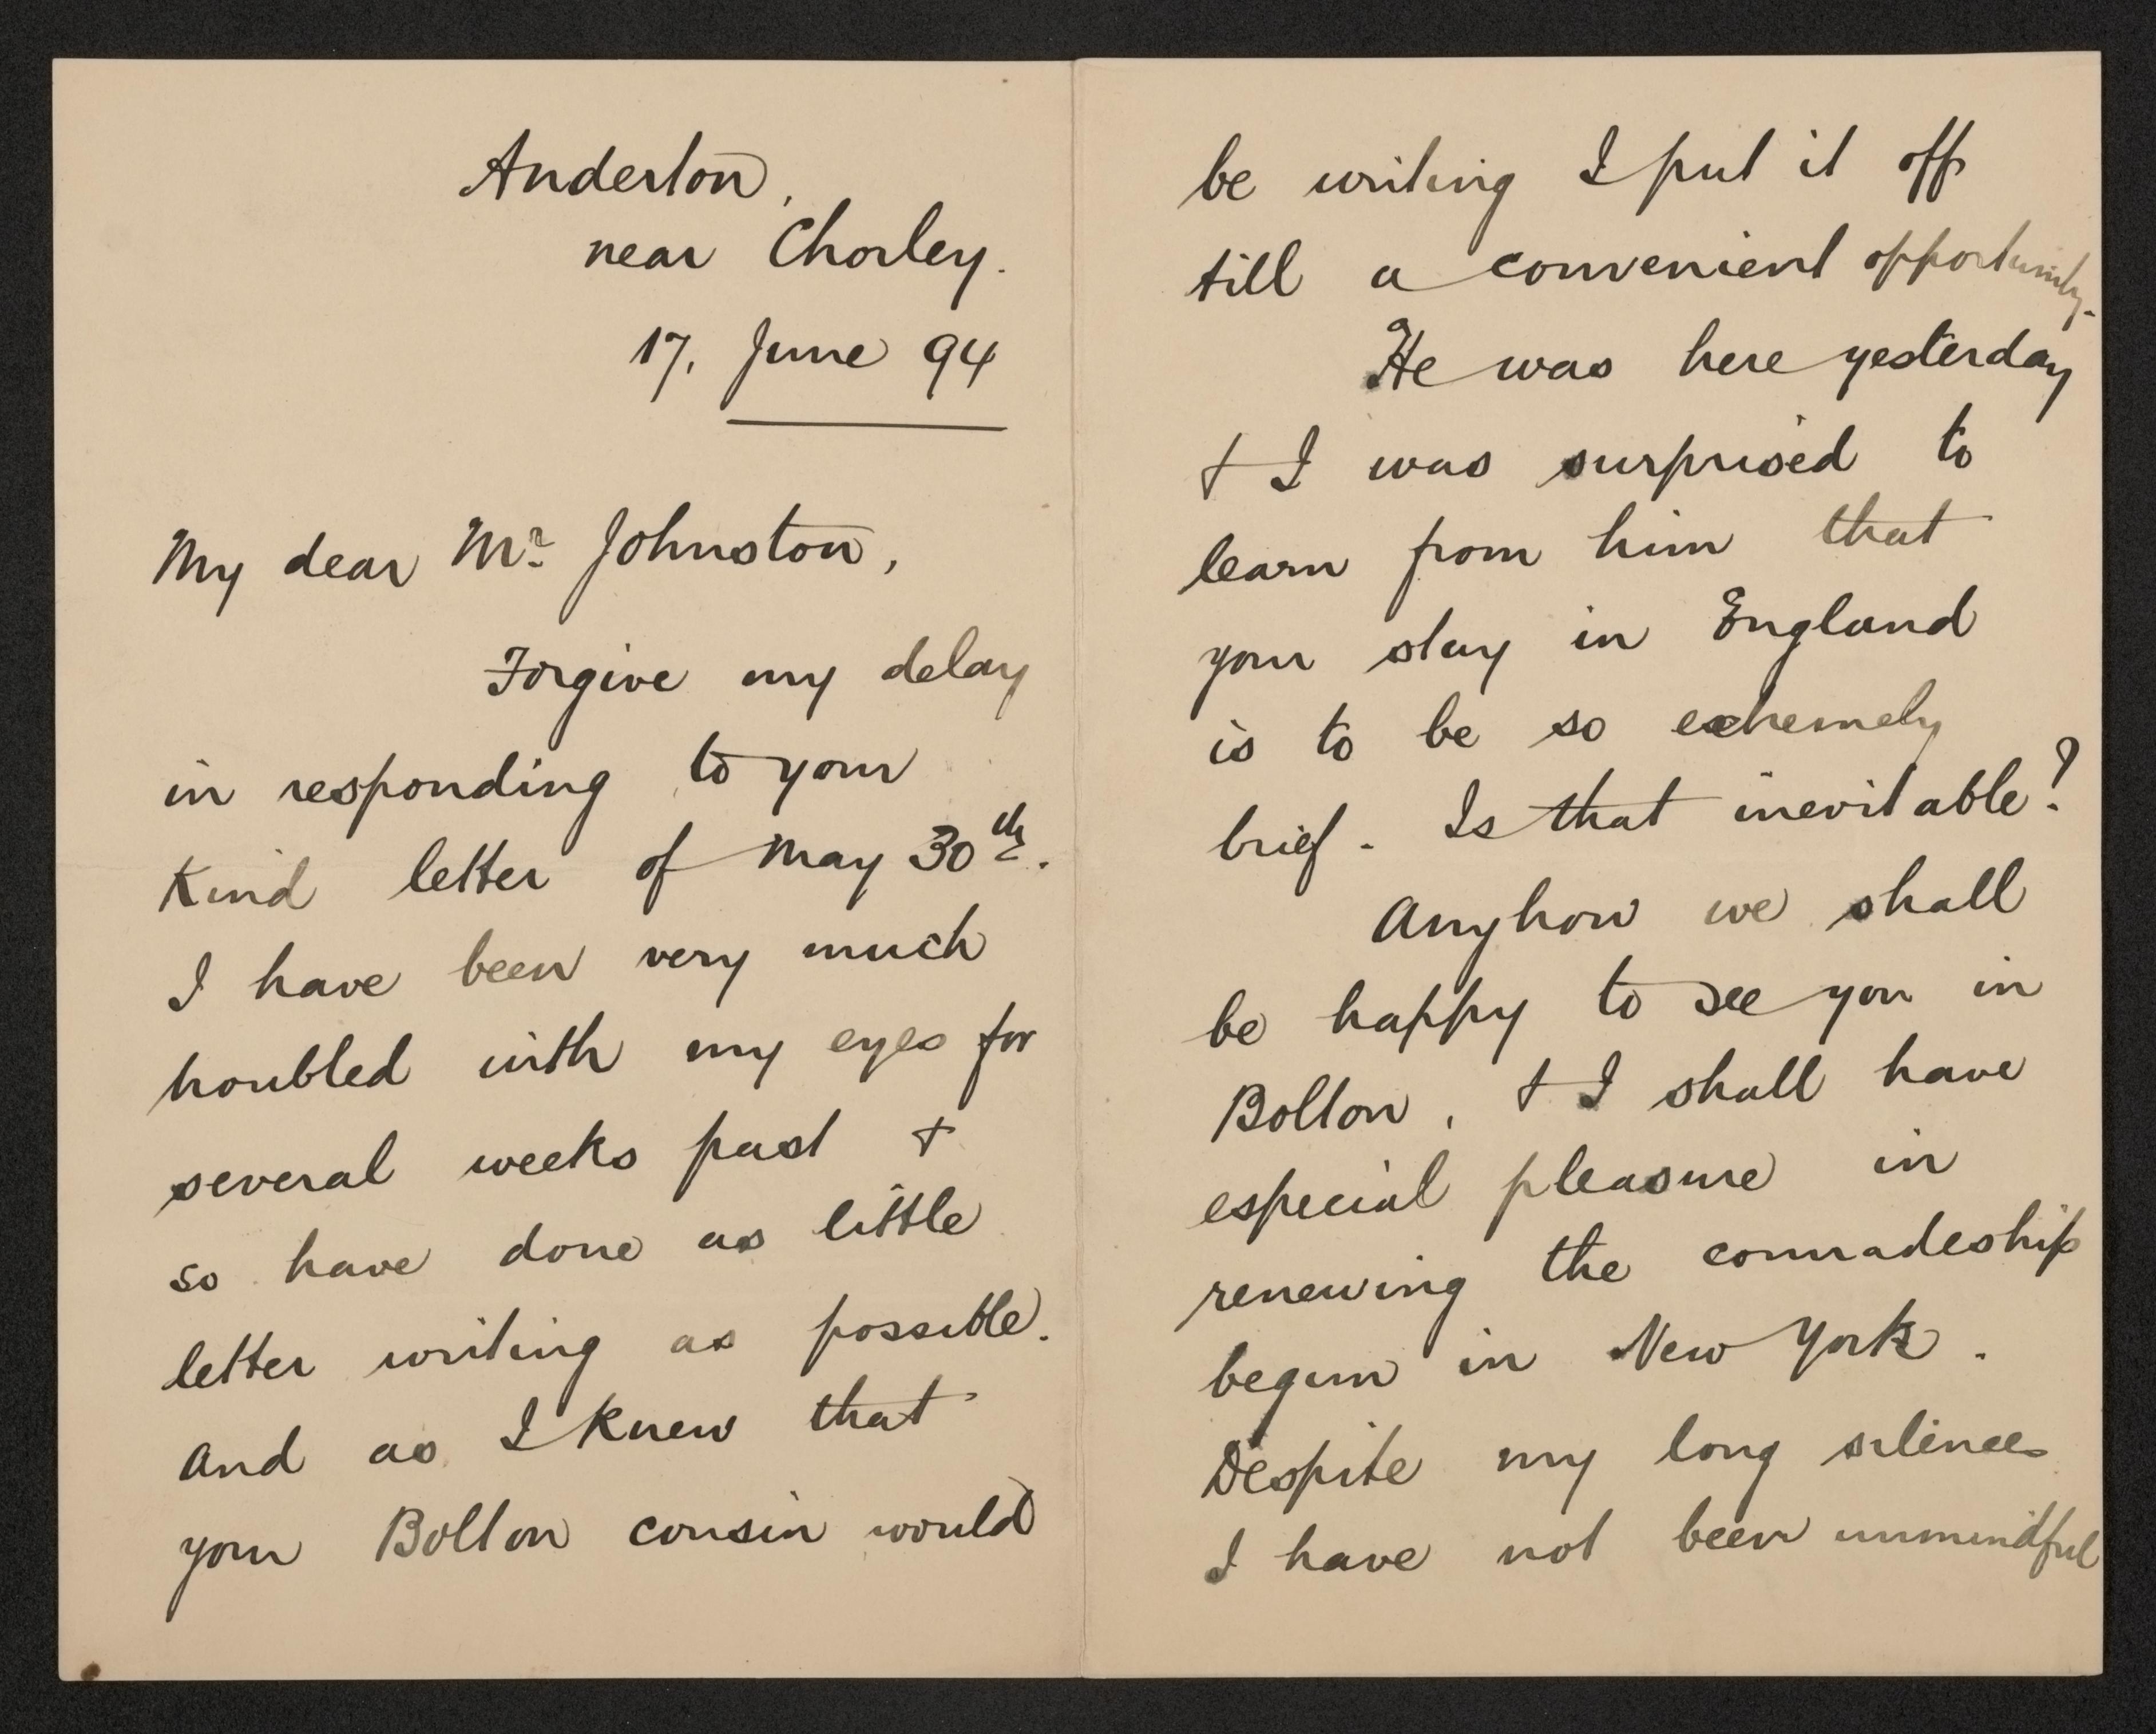 Anderton,
near Chorley.
17. June 94
My dear Mr. Johnston,
Forgive my delay
in responding to your
kind letter of May 30th.
I have been very much
troubled with my eyes for
several weeks past &
so have done as little
letter writing as possible.
And as I knew that
your Bolton cousin would
be writing I put it off
till a convenient opportunity.
He was here yesterday
& I was surprised to
learn from him that
your stay in England
is to be so extremely
brief. Is that inevitable?
Anyhow we shall
be happy to see you in
Bolton, & I shall have
especial pleasure in
renewing the comradeship
begun in New York.
Despite my long silence
I have not been unmindful